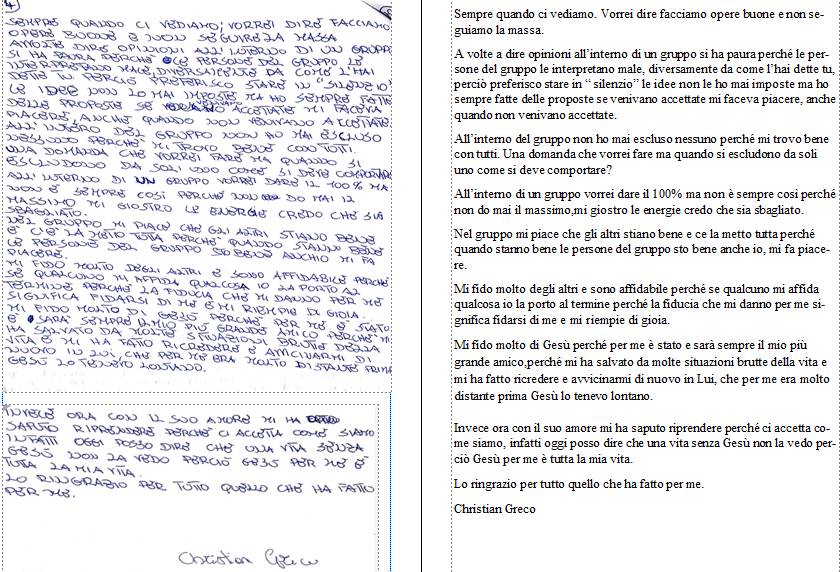 4
SEMPRE QUANDO CI VEDIAMO; VORREI DIRE FACCIAMO
OPERE BUONE E NON SEGUIRE LA MASSA
AVOLTE DIRE OPINIONI ALL'INTERNO DI UN GRUPPO
SI HA PAURA PERCHÈ LE PERSONE DEL GRUPPO LE
INTERPRETANO MALE, DIVERSAMENTE DA COME L'HAI
DETTE TU PERCIÒ PREFERISCO STARE IN "SILENZIO"
LE IDEE NON LO MAI IMPOSTE MA HO SEMPRE FATTO
DELLE PROPOSTE SE VENIVANO ACCETTATE MI FACEVA
PIACERE, ANCHE QUANDO NON VENIVANO ACCETTATE.
ALL'INTERO DEL GRUPPO NON HO MAI ESCLUSO
NESSUNO PERCHÈ MI TROVO BENE CON TUTTI.
UNA DOMANDA CHE VORREI FARE MA QUANDO SI
ESCLUDONO DA SOLI UNO COME SI DEVE COMPORTARE
ALL'INTERNO DI UN GRUPPO VORREI DARE IL 100% MA
NON È SEMPRE COSÌ PERCHÈ NON DO MAI IL
MASSIMO MI GIOSTRO LE ENERGIE CREDO CHE SIA
SBAGLIATO.
NEL GRUPPO MI PIACE CHE GLI ALTRI STIANO BENE
E CE LA METTO TUTTA PERCHÈ QUANDO STANNO BENE
LE PERSONE DEL GRUPPO STO BENE ANCHIO MI FA
PIACERE.
MI FIDO MOLTO DEGLI ALTRI E SONO AFFIDABILE PERCHÈ
SE QUALCUNO MI AFFIDA QUALCOSA IO LA PORTO AL
TERMINE PERCHÈ LA FIDUCIA CHE MI DANNO PER ME
SIGNIFICA FIDARSI DI ME E MI RIEMPIE DI GIOIA.
MI FIDO MOLTO DI GESÙ PERCHÈ PER ME È STATO
E SARÀ SEMPRE IL MIO PIÙ GRANDE AMICO PERCHÈ MI
HA SALVATO DA MOLTE SITUAZIONI BRUTTE DELLA
VITA E MI HA FATTO RICREDERE E AVVICINARMI DI
NUOVO IN LUI, CHE PER ME ERA MOLTO DISTANTE PRIMA
GESÙ LO TENEVO LONTANO.
INVECE ORA CON IL SUO AMORE MI HA
SAPUTO RIPRENDERE PERCHÈ CI ACCETTA COME SIAMO
INFATTI OGGI POSSO DIRE CHE UNA VITA SENZA
GESÙ NON LA VEDO PERCIÒ GESÙ PER ME È
TUTTA LA MIA VITA.
LO RINGRAZIO PER TUTTO QUELLO CHE HA FATTO
PER ME.
Christian Greco
Sempre quando ci vediamo. Vorrei dire facciamo opere buone e non se-
guiamo la massa.
A volte a dire opinioni all'interno di un gruppo si ha paura perché le per-
sone del gruppo le interpretano male, diversamente da come l'hai dette tu,
perciò preferisco stare in " silenzio" le idee non le ho mai imposte ma ho
sempre fatte delle proposte se venivano accettate mi faceva piacere, anche
quando non venivano accettate.
All'interno del gruppo non ho mai escluso nessuno perché mi trovo bene
con tutti. Una domanda che vorrei fare ma quando si escludono da soli
uno come si deve comportare?
All'interno di un gruppo vorrei dare il 100% ma non è sempre così perché
non do mai il massimo,mi giostro le energie credo che sia sbagliato.
Nel gruppo mi piace che gli altri stiano bene e ce la metto tutta perché
quando stanno bene le persone del gruppo sto bene anche io, mi fa piace-
re.
Mi fido molto degli altri e sono affidabile perché se qualcuno mi affida
qualcosa io la porto al termine perché la fiducia che mi danno per me si-
gnifica fidarsi di me e mi riempie di gioia.
Mi fido molto di Gesù perché per me è stato e sarà sempre il mio più
grande amico,perché mi ha salvato da molte situazioni brutte della vita e
mi ha fatto ricredere e avvicinarmi di nuovo in Lui, che per me era molto
distante prima Gesù lo tenevo lontano.
Invece ora con il suo amore mi ha saputo riprendere perché ci accetta co-
me siamo, infatti oggi posso dire che una vita senza Gesù non la vedo per-
ciò Gesù per me è tutta la mia vita.
Lo ringrazio per tutto quello che ha fatto per me.
Christian Greco